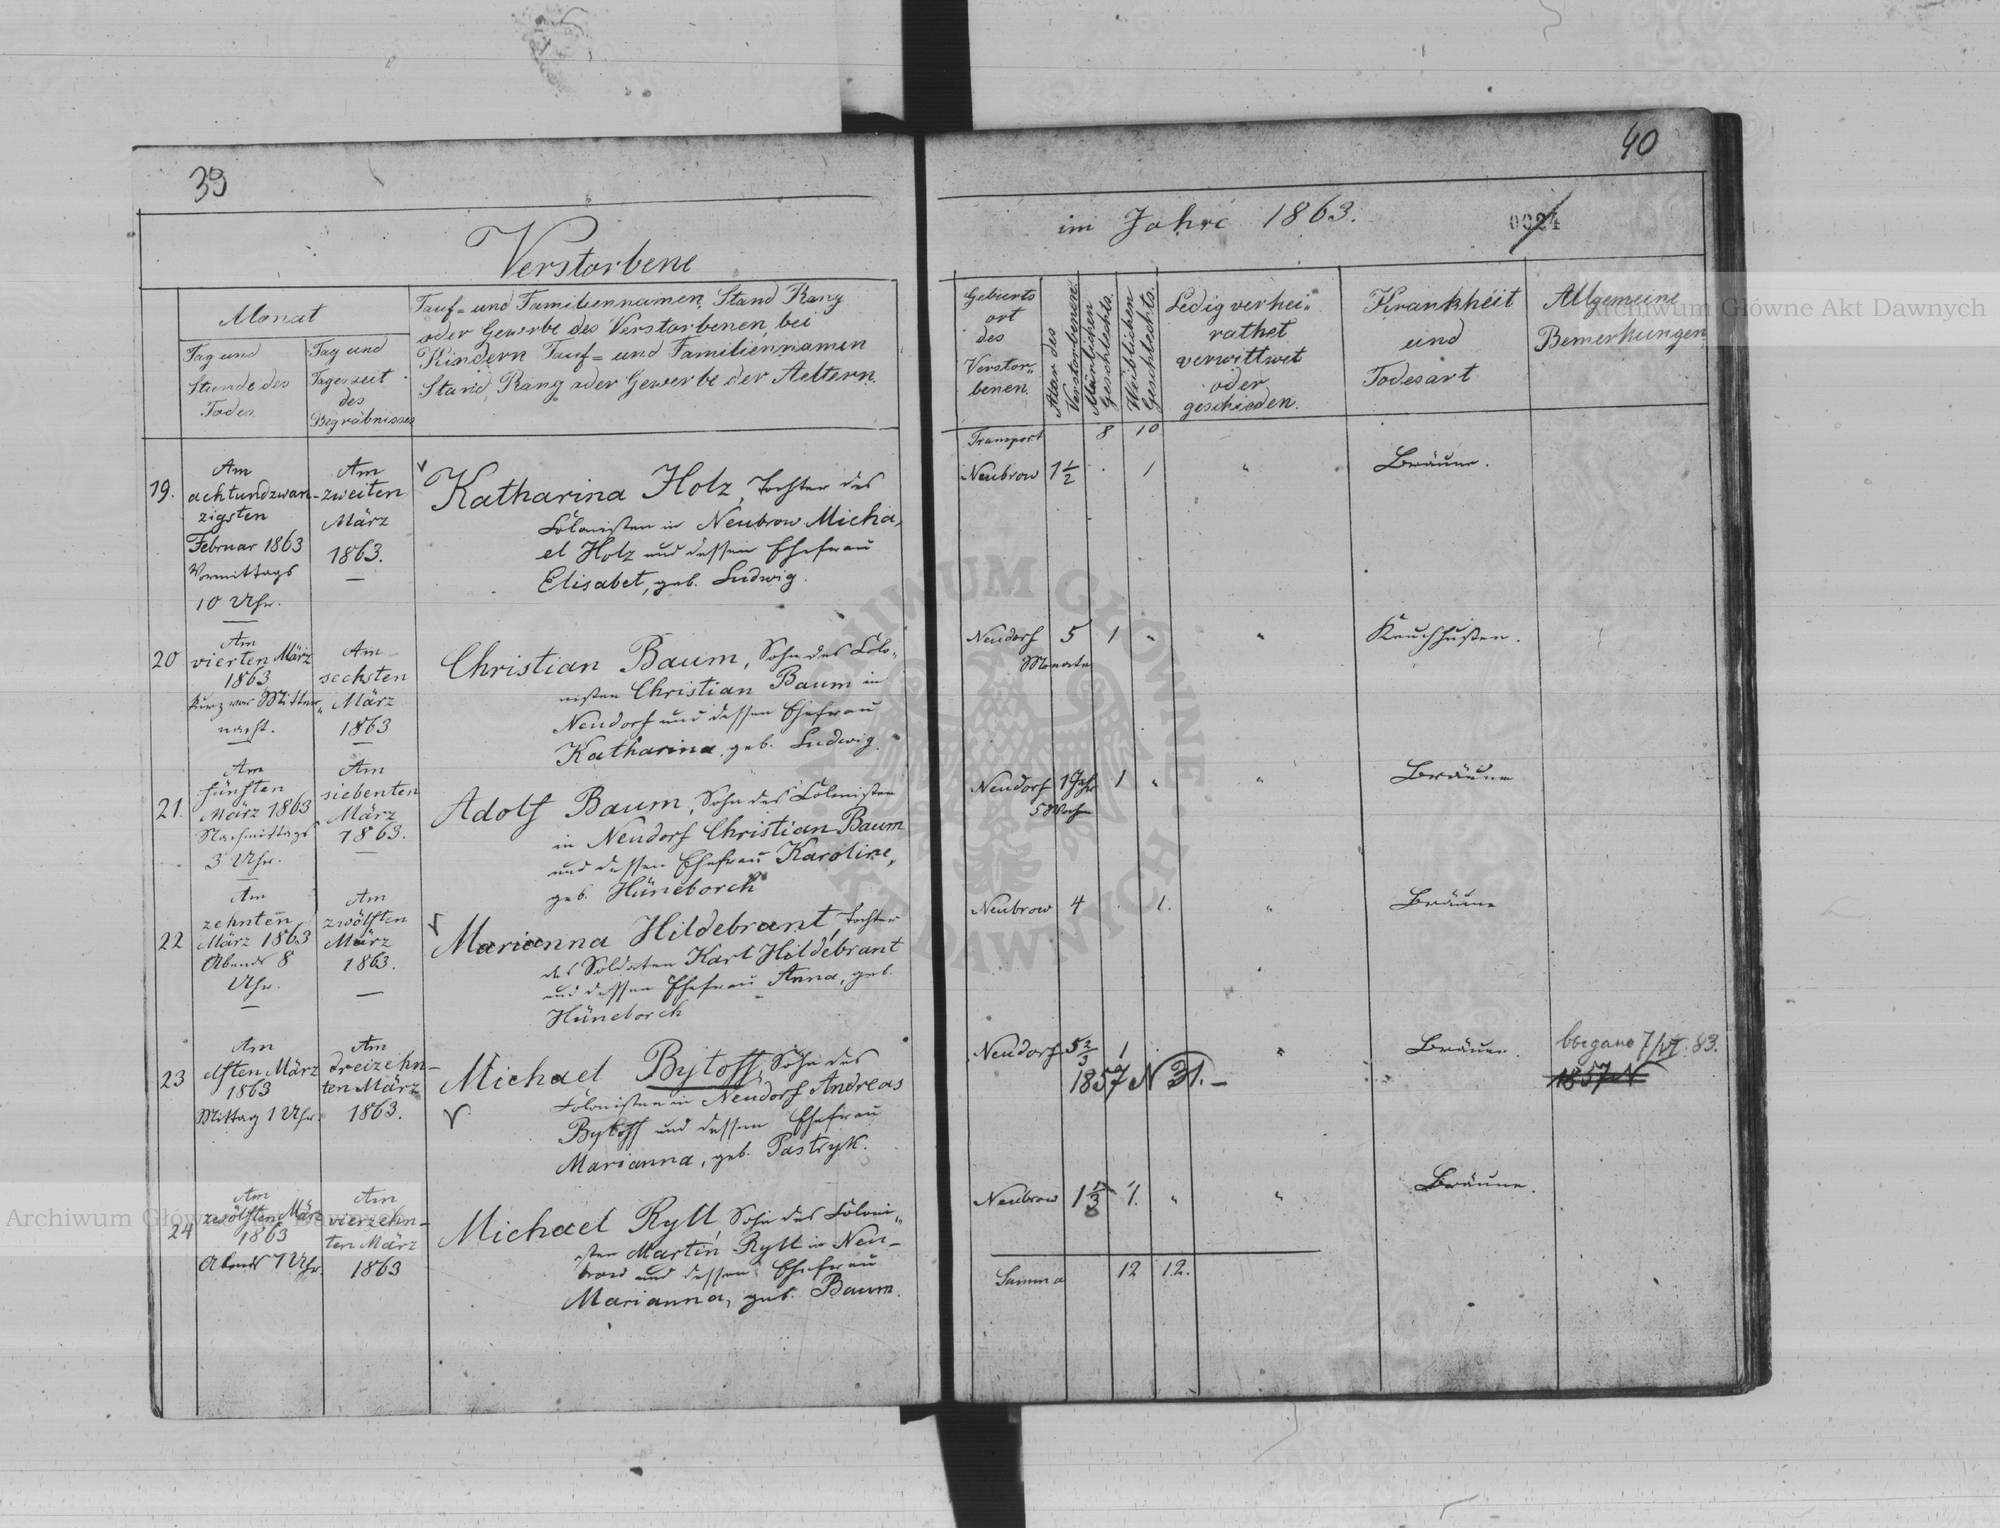 39
Verstorbene
Monat
Tag und
Stunde des
Todes
Tag und
Tageszeit
des
Begräbnisses
Tauf= und Familiennamen, Stand Rang
oder Gewerbe des Verstorbenen, bei
Kindern Tauf= und Familiennamen
Stand, Rang oder Gewerbe der Aeltern.
19.
Am
achtundzwan-
zigsten
Februar 1863
Vormittags
10 Uhr.
Am
zweiten
März
1863.
Katharina Holz, Tochter des
Colonisten in Neubrow Micha,
el Holz und dessen Ehefrau
Elisabet, geb. Ludwig.
20
Am
vierten März
1863
Kurz vor Mitter„
nacht.
Am
sechsten
März
1863
Christian Baum, Sohn des Colo„
nisten Christian Baum in
Neudorf und dessen Ehefrau
Katharina, geb. Ludwig.
21.
Am
fünften
März 1863
Nachmittags
3 Uhr.
Am
siebenten
März
1863.
Adolf Baum, Sohn des Colonisten
in Neudorf Christian Baum
und dessen Ehefrau Karoline,
geb. Hüneborch
22
Am
zehnten
März 1863
Abends 8
Uhr.
Am
zwölften
März
1863.
Marianna Hildebrant, Tochter
des Soldaten Karl Hildebrant
und dessen Ehefrau Anna, geb.
Hüneborch
23
Am
elften März
1863
Mittag 1 Uhr.
Am
dreizehn-
ten März
1863.
Michael Bytoff, Sohn des
Colonisten in Neudorf Andreas
Bytoff und dessen Ehefrau
Marianna, geb. Pastryk.
24
Am
zwölften März
1863
Abends 7 Uhr.
Am
vierzehn-
ten März
1863
Michael Ryll, Sohn des Coloni„
sten Martin Ryll in Neu-
brow und dessen Ehefrau
Marianna, geb. Baum.
40
im Jahre 1863.
0024
Geburts
ort
des
Verstor„
benen.
Alter des
Verstorbenen.
Mänlichen
Geschlechts.
Weiblichen
Geschlechts.
Ledig verhei„
rathet
verwittwet
oder
geschieden.
Krankheit
und
Todesart
Allgemeine
Bemerkungen
Transport 8 10
Neubrow 1 1/2 . 1 " Bräune.
Neudorf 5 1 " " Keuchhusten.
Monate
Neudorf 1 Jahr 1 " " Bräune
5 Wochen
Neubrow 4 . 1. " Bräune
Neudorf 5 2/3 1 " Bräune. 7/VI. 83.
1857 N 31.- 1857 N
Neubrow 1 1. " " Bräune.
Summa 12 12.
Archiwum Główne Akt Dawnych
Archiwum Główne Akt Dawnych
ARCHIWUM GŁÓWNE AKT DAWNYCH